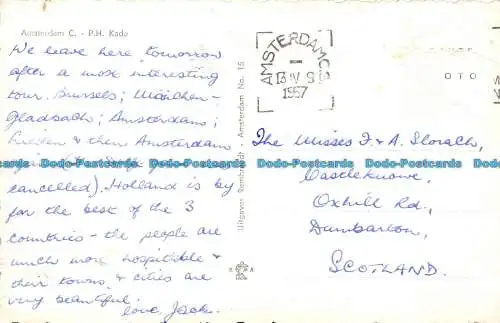 Amsterdam C. - P.H. Kade
We leave here tomorrow
after a most interesting
tour. Brussels; München-
Gladbach; Amsterdams;
& then Amsterdam
cancelled). Holland is by
far the best of the 3
countries - the people are
much more hospitable &
their towns & cities are
very beautiful.
love, Jack.
Uitgaver Rembrandt - Amsterdam No. 15
AMSTERDAM CS
13 IV 9
1957
OTO
The Misses F. & A. Slorach,
Castleknowe,
Oxhill Rd.,
Dumbarton,
SCOTLAND.
Dado-Postcards.com Dado-Postcards.com Dado-Postcards.com Dado-Postcards.com